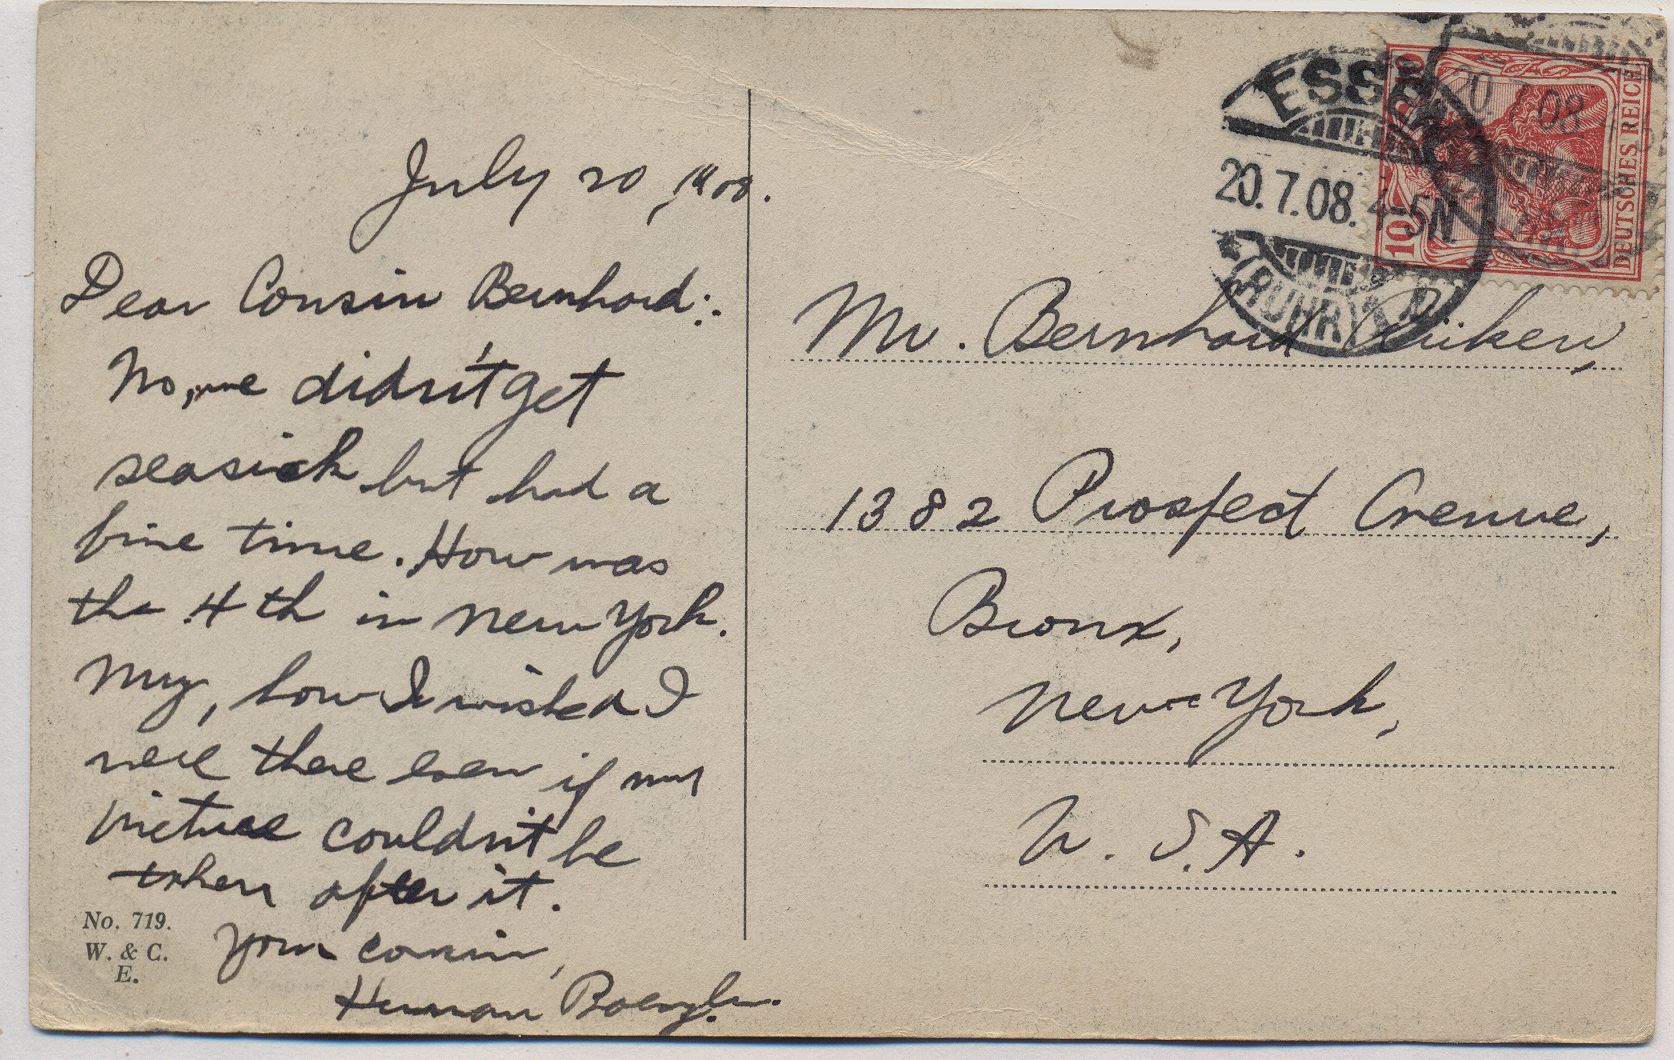 July 20, 1908.
Dear Cousin Bernhard:
No, we didn't get
seasick but had a
fine time. How was
the 4th in New York.
My, how I wished I
were there even if my
picture couldn't be
taken after it.
Your cousin,
Herman
No. 719.
W. & C.
E.
ESSEN
20.7.08. 4-5N
(RUHR)
20.7.08
10
10
DEUTSCHES REICH
Mr. Bernhard
1382 Prospect Avenue,
Bronx,
New York,
U.S.A.